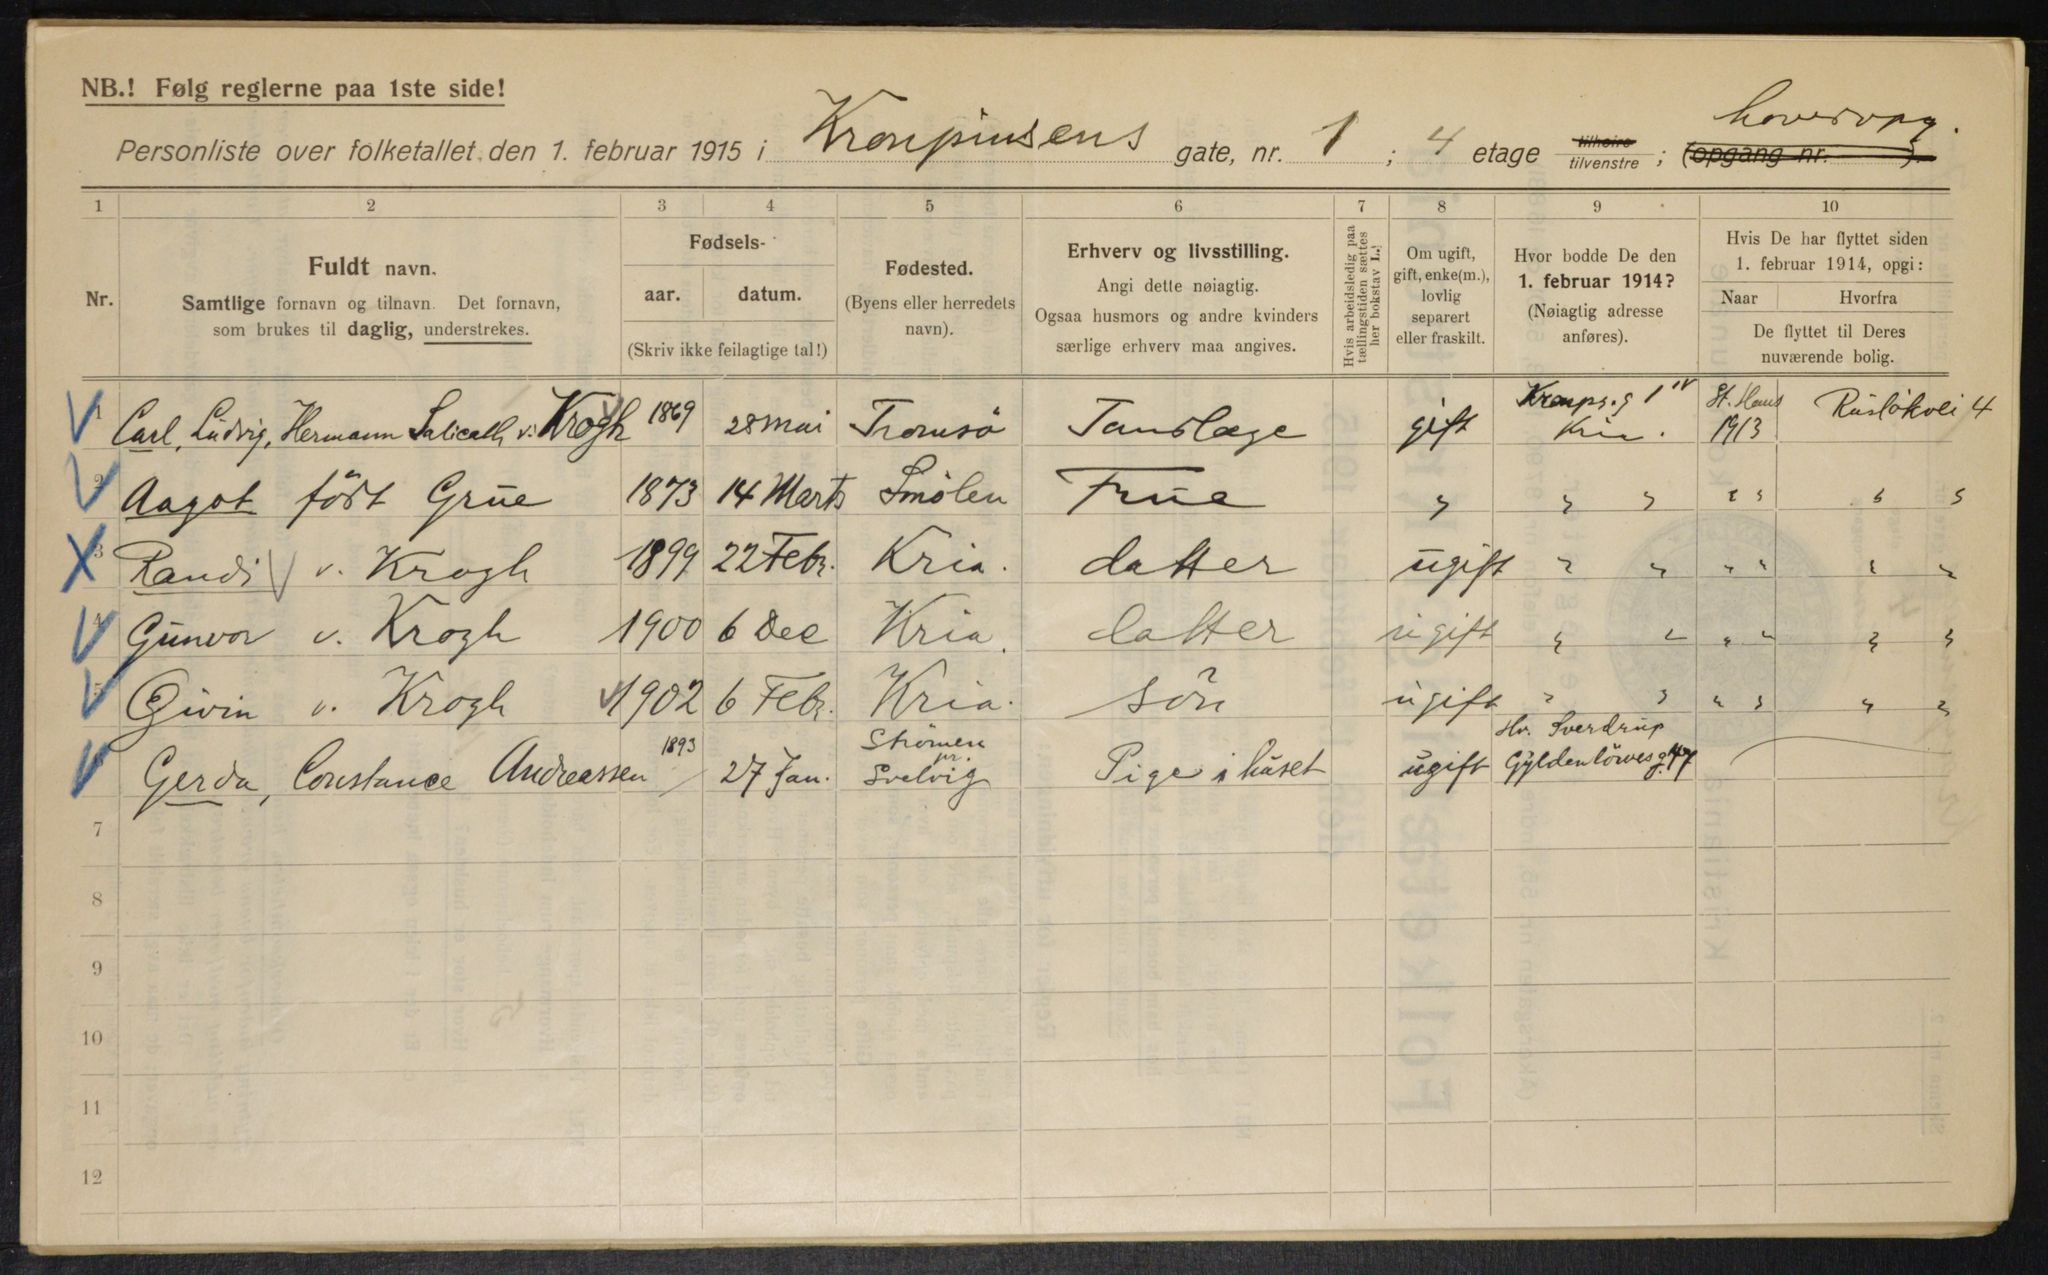 NB.! Følg reglerne paa 1ste side!
hovedopg.
Personliste over folketallet den 1. februar 1915 i Kronprinsens gate, nr. 1 ; 4 etage tilhøire tilvenstre ; (opgang nr. ).
1 2 3 4 5 6 7 8 9 10
Nr.
Fuldt navn.
Samtlige fornavn og tilnavn. Det fornavn,
som brukes til daglig, understrekes.
Fødsels-
aar. datum.
(Skriv ikke feilagtige tal!)
Fødested.
(Byens eller herredets
navn).
Erhverv og livsstilling.
Angi dette nøiagtig.
Ogsaa husmors og andre kvinders
særlige erhverv maa angives.
Hvis arbeidsledig paa
tællingstiden sættes
her bokstav L.!
Om ugift,
gift, enke(m.),
lovlig
separert
eller fraskilt.
Hvor bodde De den
1. februar 1914?
(Nøiagtig adresse
anføres).
Hvis De har flyttet siden
1. februar 1914, opgi:
Naar Hvorfra
De flyttet til Deres
nuværende bolig.
1 Carl, Ludvig, Hermann Salicath v: Krogh 1869 28 mai Tromsö Tandlæge gift Kronpr.g 1 IV Kria. St. Hans 1913 Rusløkvei 4
2 Aagot født Grue 1873 14 Marts Smölen Frue " " " " " " "
3 Randi v. Krogh 1899 22 Febr. Kria. datter ugift " " " " " "
4 Gunvor v. Krogh 1900 6 Dec Kria. datter ugift " " " " " "
5 Eivin v. Krogh 1902 6 Febr. Kria. sön ugift " " " " " "
Gerda, Constance Andreassen 1893 27 Jan. Strömen pr. Svelvig Pige i huset ugift Hr. Sverdrup Gyldenlöwesg. 47
7
8
9
10
11
12